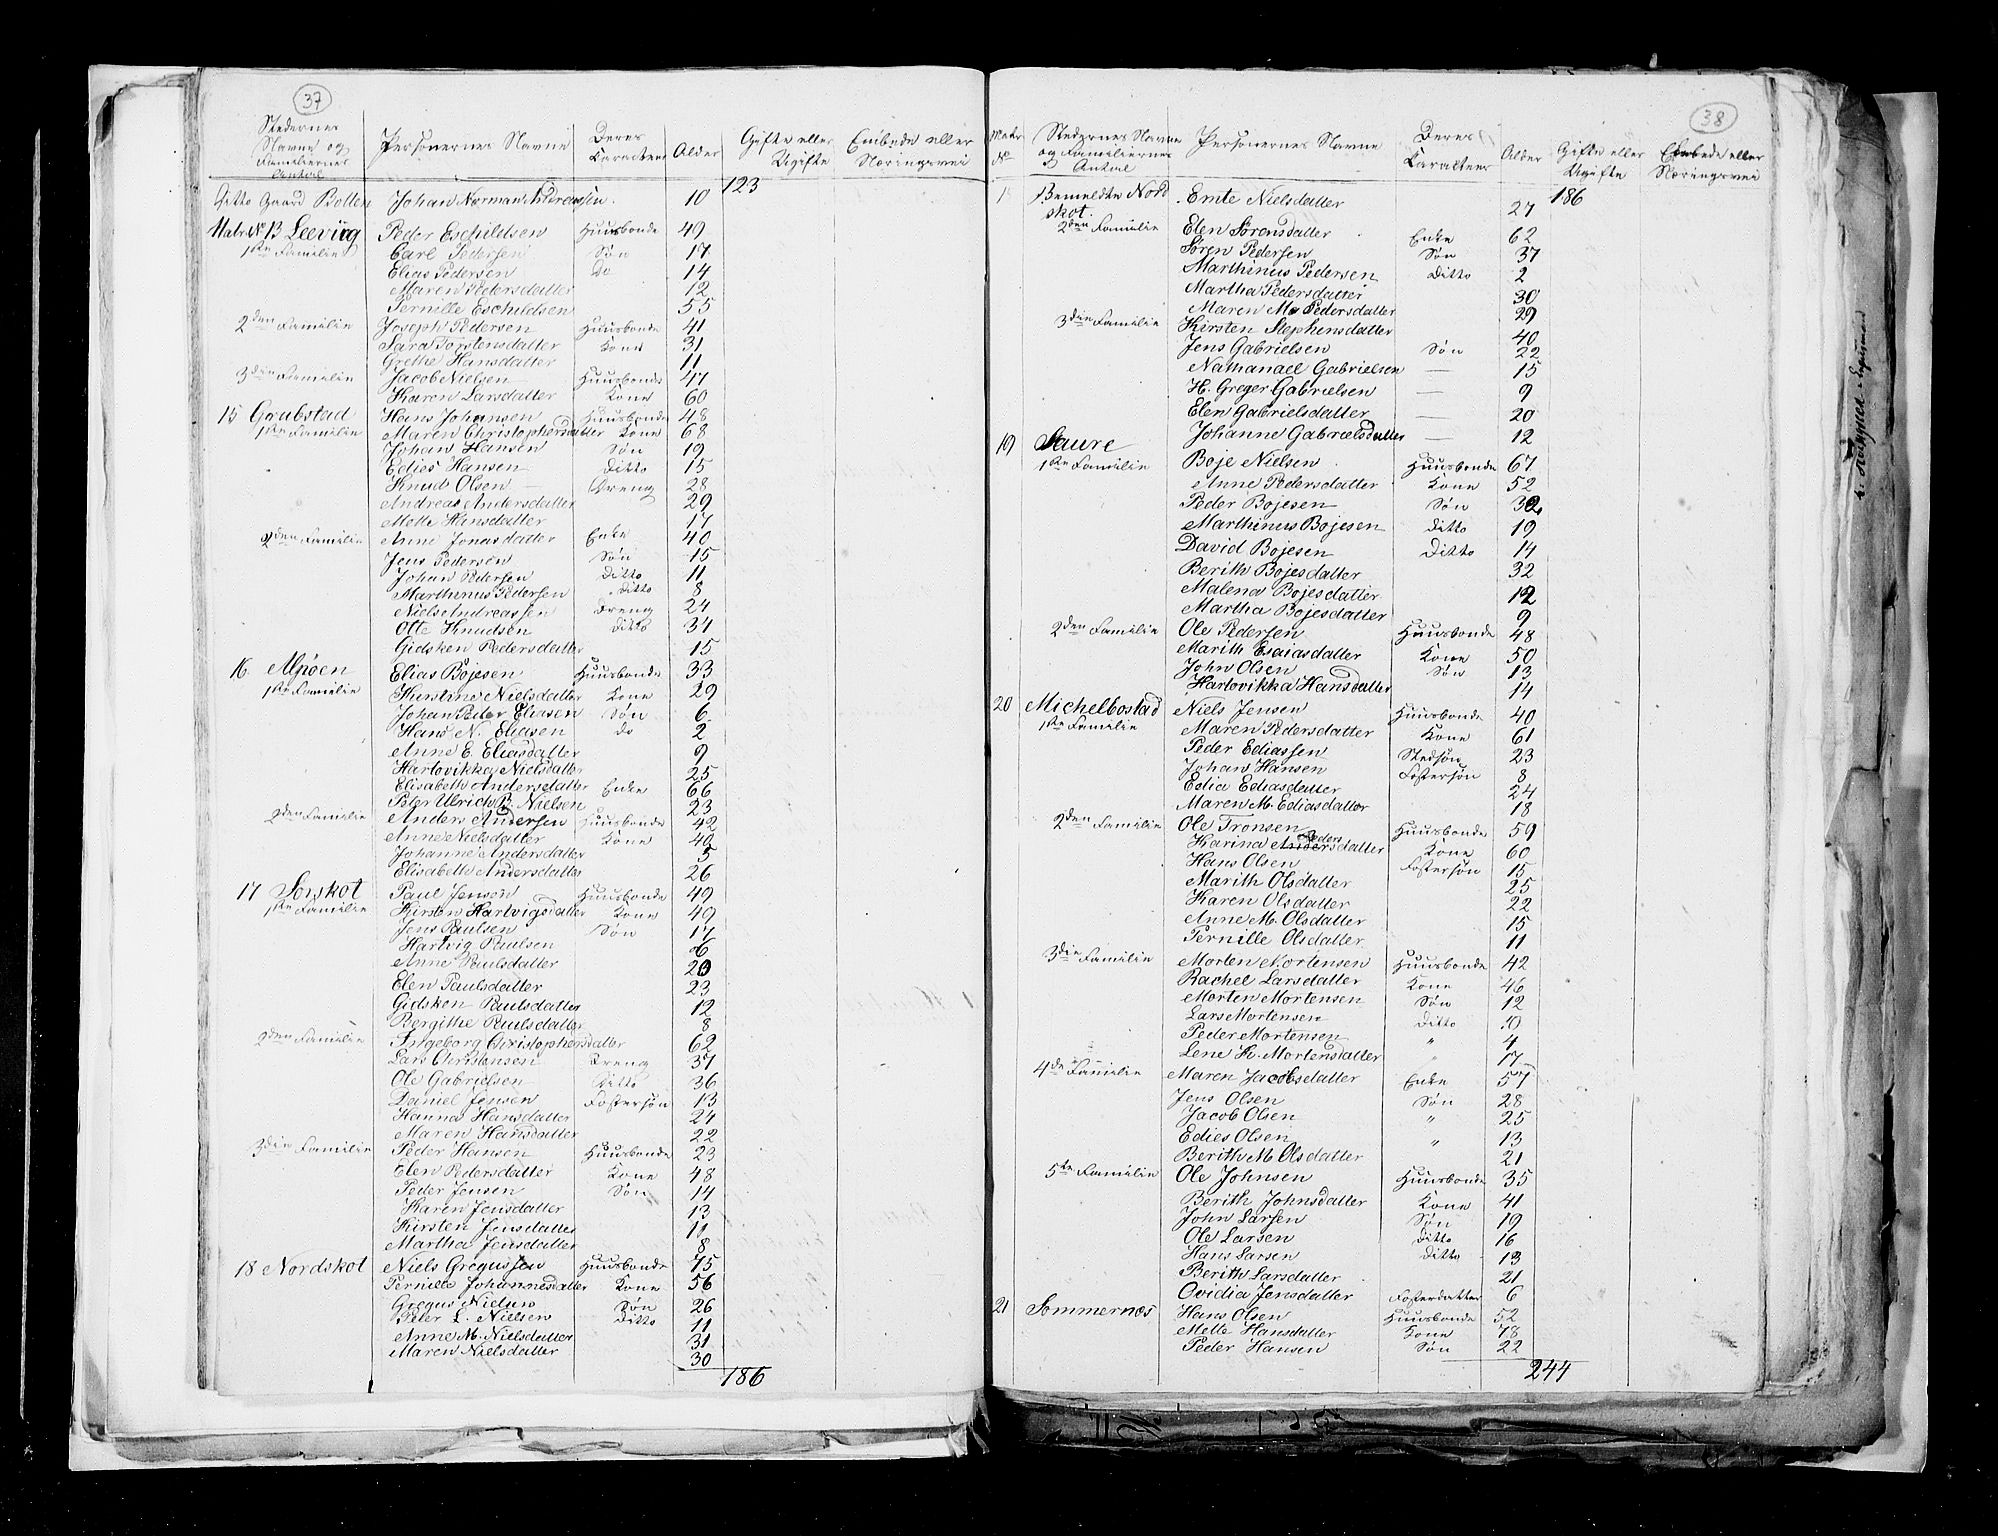 37
Stedernes Navne og Familiernes Antal | Personernes Navne | Deres Caracteer | Alder | Gifte eller Ugifte | Embede eller Næringsvei
123
Ditto Gaard Bolten | Johan Norman Andreassen | 10
Matr. No 13 Leeving | Peder Eschildsen | Huusbonde | 49
1ste Familie | Carl Pedersen | Søn | 17
Elias Pedersen | Do | 14
Maren Pedersdatter | 12
Pernille Eschildsen | 55
2den Familie | Joseph Pedersen | Huusbonde | 41
Sara Torstensdatter | Kone | 31
Grethe Hansdatter | 11
3die Familie | Jacob Nielsen | Huusbonde | 47
Karen Larsdatter | Kone | 60
15 Grubstad | Hans Johansen | Huusbonde | 48
1ste Familie | Maren Christophersdatter | Kone | 68
Johan Hansen | Søn | 19
Edies Hansen | Ditto | 15
Knud Olsen | Dreng | 28
Andrea Andersdatter | 29
Mette Hansdatter | 17
2den Familie | Anne Jonasdatter | Enke | 40
Jens Pedersen | Søn | 15
Johan Pedersen | Ditto | 11
Marthinus Pedersen | Ditto | 8
Niels Andreassen | Dreng | 24
Olte Knudsen | Ditto | 34
Gidsken Pedersdatter | 15
16 Alpøen | Elias Bojesen | Huusbonde | 33
1ste Familie | Kirstine Nielsdatter | Kone | 29
Johan Peter Eliasen | Søn | 6
Hans N. Eliasen | do | 2
Anne E. Eliasdatter | 9
Hartovikka Nielsdatter | 25
Elisabeth Andersdatter | Enke | 66
Peter Ulrich B. Nielsen | 23
2den Familie | Anders Andersen | Huusbonde | 42
Anne Nielsdatter | Kone | 40
Johanne Andersdatter | 5
Elisabeth Andersdatter | 26
17 Sørskot | Paul Jensen | Huusbonde | 49
1ste Familie | Kirsten Hartvigsdatter | Kone | 49
Jens Paulsen | Søn | 17
Hartvig Paulsen | 6
Anne Paulsdatter | 20
Elen Paulsdatter | 23
Gidsken Paulsdatter | 12
Bergithe Paulsdatter | 8
2den Familie | Ingeborg Christophersdatter | 62
Lars Christensen | Dreng | 37
Ole Gabrielsen | Ditto | 36
Daniel Jensen | Fostersøn | 13
Hanna Hansdatter | 24
Maren Hansdatter | 22
3die Familie | Peder Hansen | Huusbonde | 23
Elen Pedersdatter | Kone | 48
Peder Jensen | Søn | 14
Karen Jensdatter | 13
Kirsten Jensdatter | 11
Martha Jensdatter | 8
18 Nordskot | Niels Gregussen | Huusbonde | 75
Pernille Johannesdatter | Kone | 56
Gregus Nielsen | Søn | 26
Peter L. Nielsen | Ditto | 11
Anne M. Nielsdatter | 31
Maren Nielsdatter | 30
186
38
Matr No | Stedernes Navne og Familiernes Antal | Personernes Navne | Deres Caracteer | Alder | Gifte eller Ugifte | Embede eller Næringsvei
186
Bemeldte Nordskot. | Emte Nielsdatter | 27
2den Familie | Elen Sørensdatter | Enke | 62
Søren Pedersen | Søn | 37
Marthinus Pedersen | Ditto | 2
Martha Pedersdatter | 30
Maren M. Pedersdatter | 29
3die Familie | Kirsten Stephensdatter | 40
Jens Gabrielsen | Søn | 22
Nathanael Gabrielsen | — | 15
H. Greger Gabrielsen | — | 9
Elen Gabrielsdatter | — | 20
Johanne Gabrielsdatter | — | 12
19 | Saure
1ste Familie | Boje Nielsen | Huusbonde | 67
Anne Pedersdatter | Kone | 52
Peder Bojesen | Søn | 30
Marthinus Bojesen | Ditto | 19
David Bojesen | Ditto | 14
Berith Bojesdatter | 32
Malena Bojesdatter | 12
Martha Bojesdatter | 9
2den Familie | Ole Pedersen | Huusbonde | 48
Marith Esaiasdatter | Kone | 50
John Olsen | Søn | 13
Hartovikka Hansdatter | 14
20 | Michelbostad | Niels Jensen | Huusbonde | 40
1ste Familie | Maren Pedersdatter | Kone | 61
Peder Ediassen | Stedsøn | 23
Johan Hansen | Fostersøn | 8
Edia Ediasdatter | 24
Maren M. Ediasdatter | 18
2den Familie | Ole Tronsen | Huusbonde | 59
Karina Anders Pedersdatter | Kone | 60
Hans Olsen | Fostersøn | 15
Marith Olsdatter | 25
Karen Olsdatter | 22
Anne M. Olsdatter | 15
Pernille Olsdatter | 11
3die Familie | Morten Mortensen | Huusbonde | 42
Rachel Larsdatter | Kone | 46
Morten Mortensen | Søn | 12
Lars Mortensen | Ditto | 10
Peder Mortensen | " | 4
Lene K. Mortensdatter | " | 17
4de Familie | Maren Jacobsdatter | Enke | 57
Jens Olsen | Søn | 28
Jacob Olsen | " | 25
Edies Olsen | " | 13
Berith M. Olsdatter | 21
5te Familie | Ole Johnsen | Huusbonde | 35
Berith Johnsdatter | Kone | 41
John Larsen | Søn | 19
Ole Larsen | Ditto | 16
Hans Larsen | Ditto | 13
Berith Larsdatter | 21
Ovidia Jensdatter | Fosterdatter | 6
21 | Sommernæs | Hans Olsen | Huusbonde | 52
Mette Hansdatter | Kone | 78
Peder Hansen | Søn | 22
244